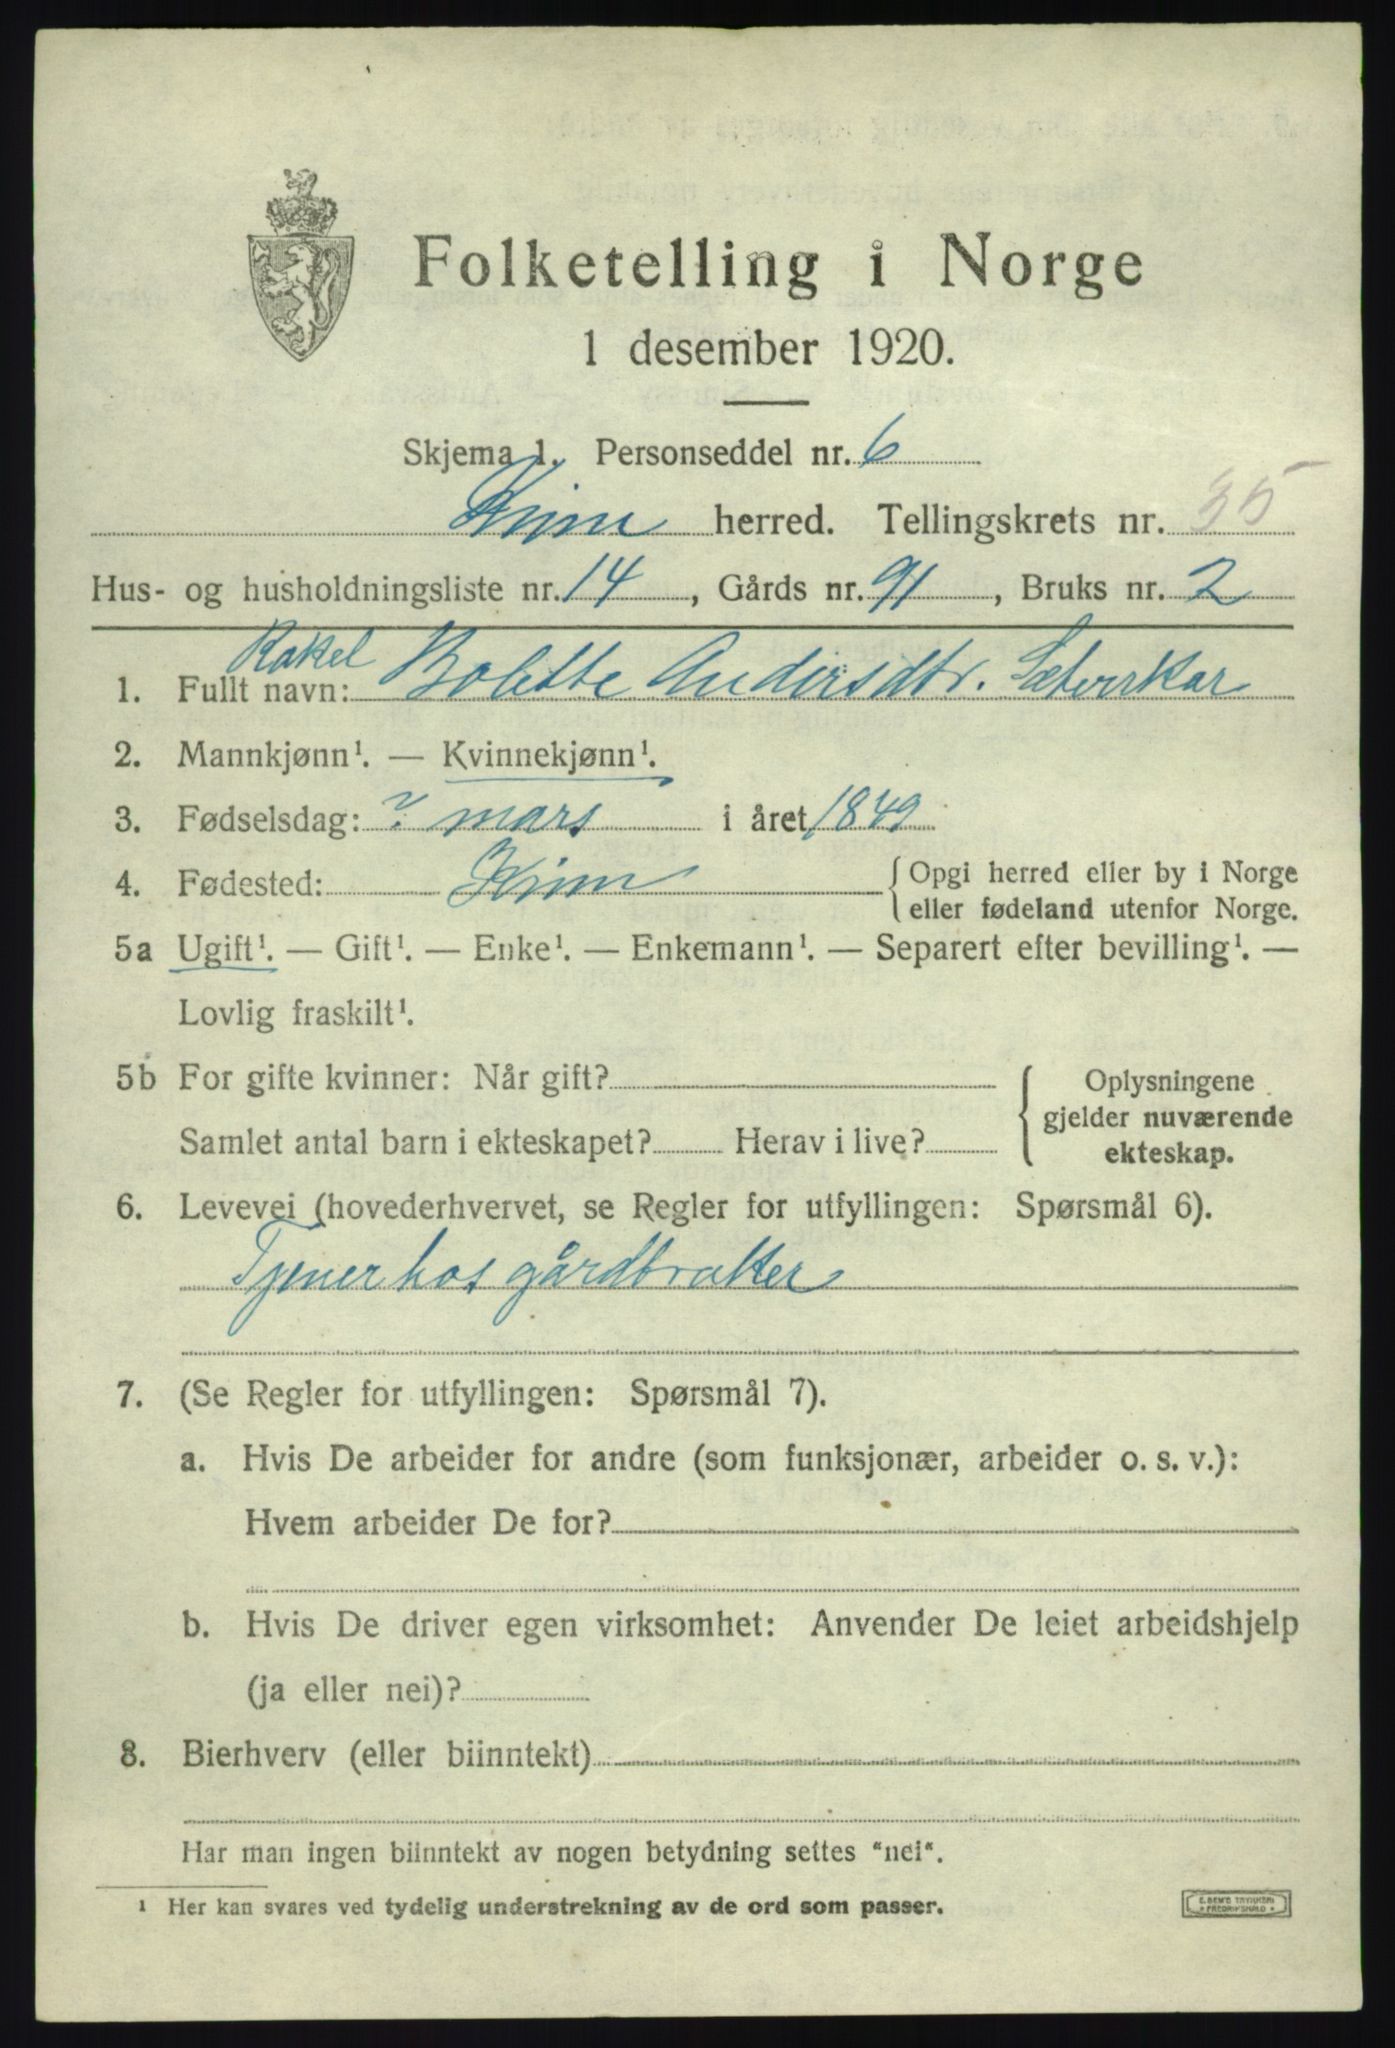 Folketelling i Norge
1 desember 1920.
Skjema 1. Personseddel nr. 6
Kinn herred. Tellingskrets nr. 35
Hus- og husholdningsliste nr. 14, Gårds nr. 91, Bruks nr. 2
Rakel
1. Fullt navn: Bolette Andersdtr. Sætrerkar
2. Mannkjønn¹. — Kvinnekjønn¹.
3. Fødselsdag: ? mars i året 1849
4. Fødested: Kinn {Opgi herred eller by i Norge
eller fødeland utenfor Norge.
5a Ugift¹. — Gift¹. — Enke¹. — Enkemann¹. — Separert efter bevilling¹. —
Lovlig fraskilt¹.
5b For gifte kvinner: Når gift? { Oplysningene
gjelder nuværende
Samlet antal barn i ekteskapet? Herav i live?
ekteskap.
6. Levevei (hovederhvervet, se Regler for utfyllingen: Spørsmål 6).
Tjener hos gårdbruker
7. (Se Regler for utfyllingen: Spørsmål 7).
a. Hvis De arbeider for andre (som funksjonær, arbeider o. s. v.):
Hvem arbeider De for?
b. Hvis De driver egen virksomhet: Anvender De leiet arbeidshjelp
(ja eller nei)?
8. Bierhverv (eller biinntekt)
Har man ingen biinntekt av nogen betydning settes "nei".
¹ Her kan svares ved tydelig understrekning av de ord som passer.
E. SEM'S TRYKKERI
FREDRIKSHALD